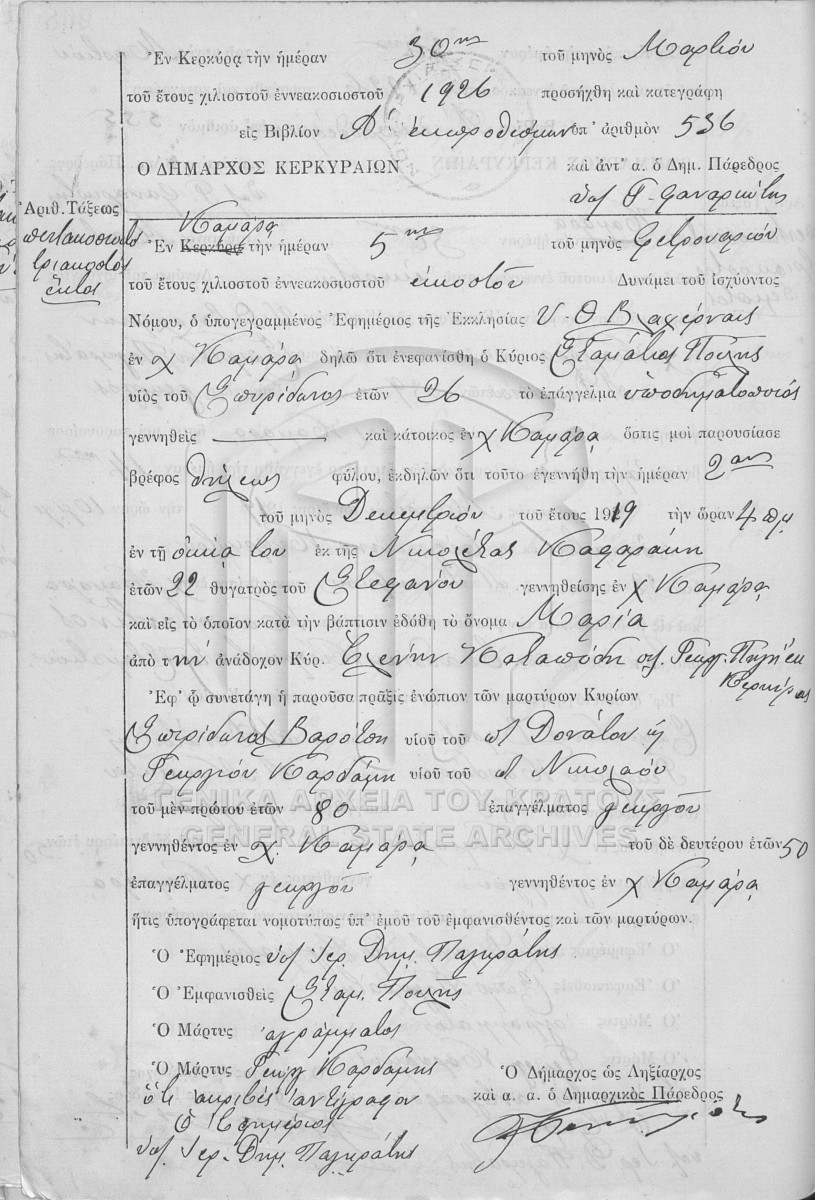 Ἐν Κερκύρᾳ τὴν ἡμέραν 30ην τοῦ μηνὸς Μαρτίου
τοῦ ἔτους χιλιοστοῦ ἐννεακοσιοστοῦ 1926 προσήχθη καὶ κατεγράφη
εἰς Βιβλίον Α' ἐκπροθέσμων ὑπ' ἀριθμὸν 536
Ο ΔΗΜΑΡΧΟΣ ΚΕΡΚΥΡΑΙΩΝ καὶ ἀντ' α. ὁ Δημ. Πάρεδρος
Ἀριθ. Τάξεως
πεντακοσιοστὸς
τριακοστὸς
ἕκτος
Καμάρᾳ
Ἐν Κερκύρᾳ τὴν ἡμέραν 5ην τοῦ μηνὸς Φεβρουαρίου
τοῦ ἔτους χιλιοστοῦ ἐννεακοσιοστοῦ εἰκοστοῦ Δυνάμει τοῦ ἰσχύοντος
Νόμου, ὁ ὑπογεγραμμένος Ἐφημέριος τῆς Ἐκκλησίας Υ. Θ. Βλαχέρναις
ἐν χ Καμάρᾳ δηλῶ ὅτι ἐνεφανίσθη ὁ Κύριος Σταμάτιος Πουλῆς
υἱὸς τοῦ Σπυρίδωνος ἐτῶν 26 τὸ ἐπάγγελμα ὑποδηματοποιός
γεννηθεὶς καὶ κάτοικος ἐν χ Καμάρᾳ ὅστις μοὶ παρουσίασε
βρέφος θήλεως φύλου, ἐκδηλῶν ὅτι τοῦτο ἐγεννήθη τὴν ἡμέραν 2αν
τοῦ μηνὸς Δεκεμβρίου τοῦ ἔτους 1919 τὴν ὥραν 4 πμ
ἐν τῇ οἰκίᾳ του ἐκ τῆς Νικολέτας Καφαράκη
ἐτῶν 22 θυγατρὸς τοῦ Στεφάνου γεννηθείσης ἐν χ Καμάρᾳ
καὶ εἰς τὸ ὁποῖον κατὰ τὴν βάπτισιν ἐδόθη τὸ ὄνομα Μαρία
ἀπὸ τὴν ἀνάδοχον Κύρ. Ἑλένην Καταπόδη συζ. Γεωργ. ἐκ
Κερκύρας
Ἐφ' ᾧ συνετάγη ἡ παροῦσα πρᾶξις ἐνώπιον τῶν μαρτύρων Κυρίων
Σπυρίδωνος Βαρότση υἱοῦ τοῦ πτ Δονάτου κ
Γεωργίου Καρδάμη υἱοῦ τοῦ πτ Νικολάου
τοῦ μὲν πρώτου ἐτῶν 80 ἐπαγγέλματος γεωργοῦ
ΓΕΝΙΚΑ ΑΡΧΕΙΑ ΤΟΥ ΚΡΑΤΟΥΣ
GENERAL STATE ARCHIVES
γεννηθέντος ἐν χ. Καμάρᾳ τοῦ δὲ δευτέρου ἐτῶν 50
ἐπαγγέλματος γεωργοῦ γεννηθέντος ἐν χ Καμάρᾳ
ἥτις ὑπογράφεται νομοτύπως ὑπ' ἐμοῦ τοῦ ἐμφανισθέντος καὶ τῶν μαρτύρων.
Ὁ Ἐφημέριος ὑπ. Ἱερ. Δημ. Παγκράτης
Ὁ Ἐμφανισθεὶς Σταμ. Πουλῆς
Ὁ Μάρτυς ἀγράμματος
Ὁ Μάρτυς Γεωργ Καρδάμης Ὁ Δήμαρχος ὡς Ληξίαρχος
ὅτι ἀκριβὲς ἀντίγραφον καὶ α. α. ὁ Δημαρχικὸς Πάρεδρος
Ὁ Ἐφημέριος
ὑπ. Ἱερ. Δημ. Παγκράτης